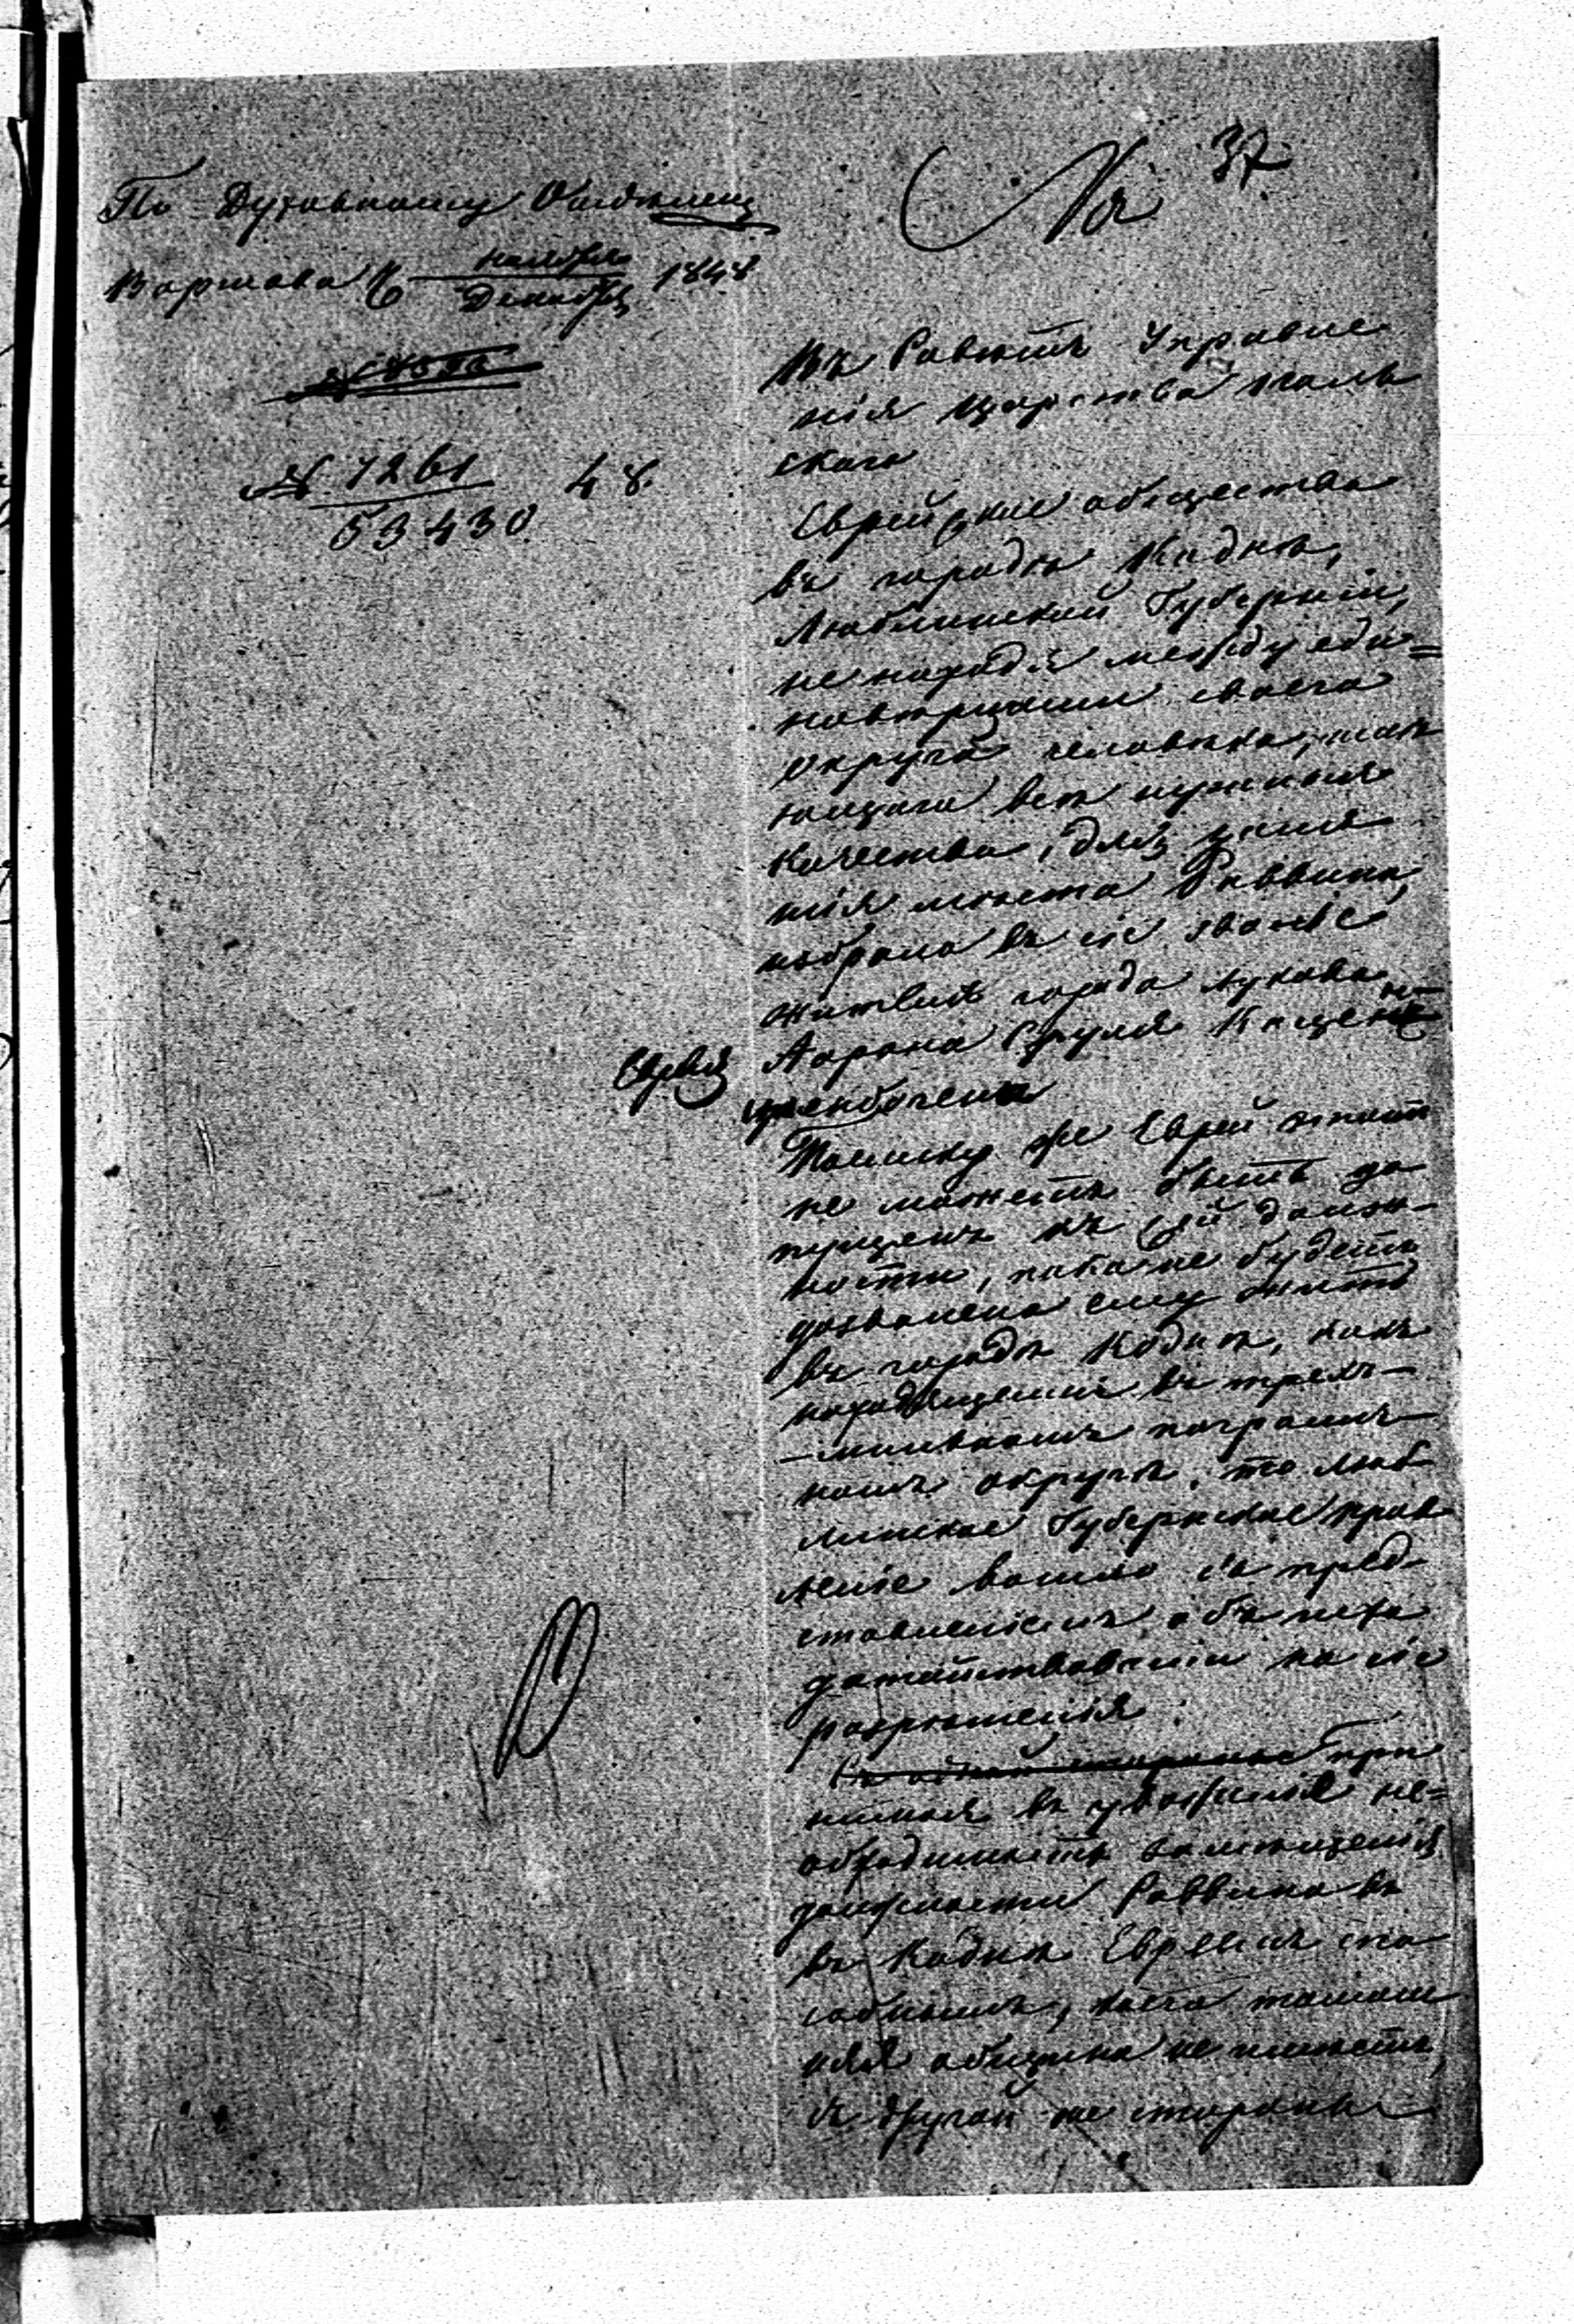 37
По Духовному Отдѣленію
Варшава
ноября
Декабря
1848
№ 7261
53430
48
Въ Совѣтъ Управле
нія Царства Поль
скаго
Еврейское общество
въ городѣ Коднѣ,
Люблинской Губерніи,
не находя между еди=
новѣрцами своего
округа человѣка, имѣ
ющаго всѣ нужныя
качества, для занія
нія мѣста Раввина,
избрало въ сіе званіе
жителя города Лукова
Еврея
Аарона Сруля Кацен
еленбогена
Поелику же Еврей этотъ
не можетъ быть до
пущенъ къ сей долж-
ности, пока не будетъ
дозволено ему жить
въ городѣ Коднѣ, какъ
находящемся въ трехъ-
-мильномъ погранич-
номъ округѣ, то Люб
линское Губернское Прав
леніе вошло съ пред-
ставленіемъ объ исхо
датайствованіи на сіе
разрѣшенія.
Съ одной стороны при
нимая въ уваженіе не=
обходимость замѣщенія
должности Раввина въ
въ Коднѣ Евреемъ спо
собнымъ, коего тамош
няя община не имѣетъ,
съ другой же стороны